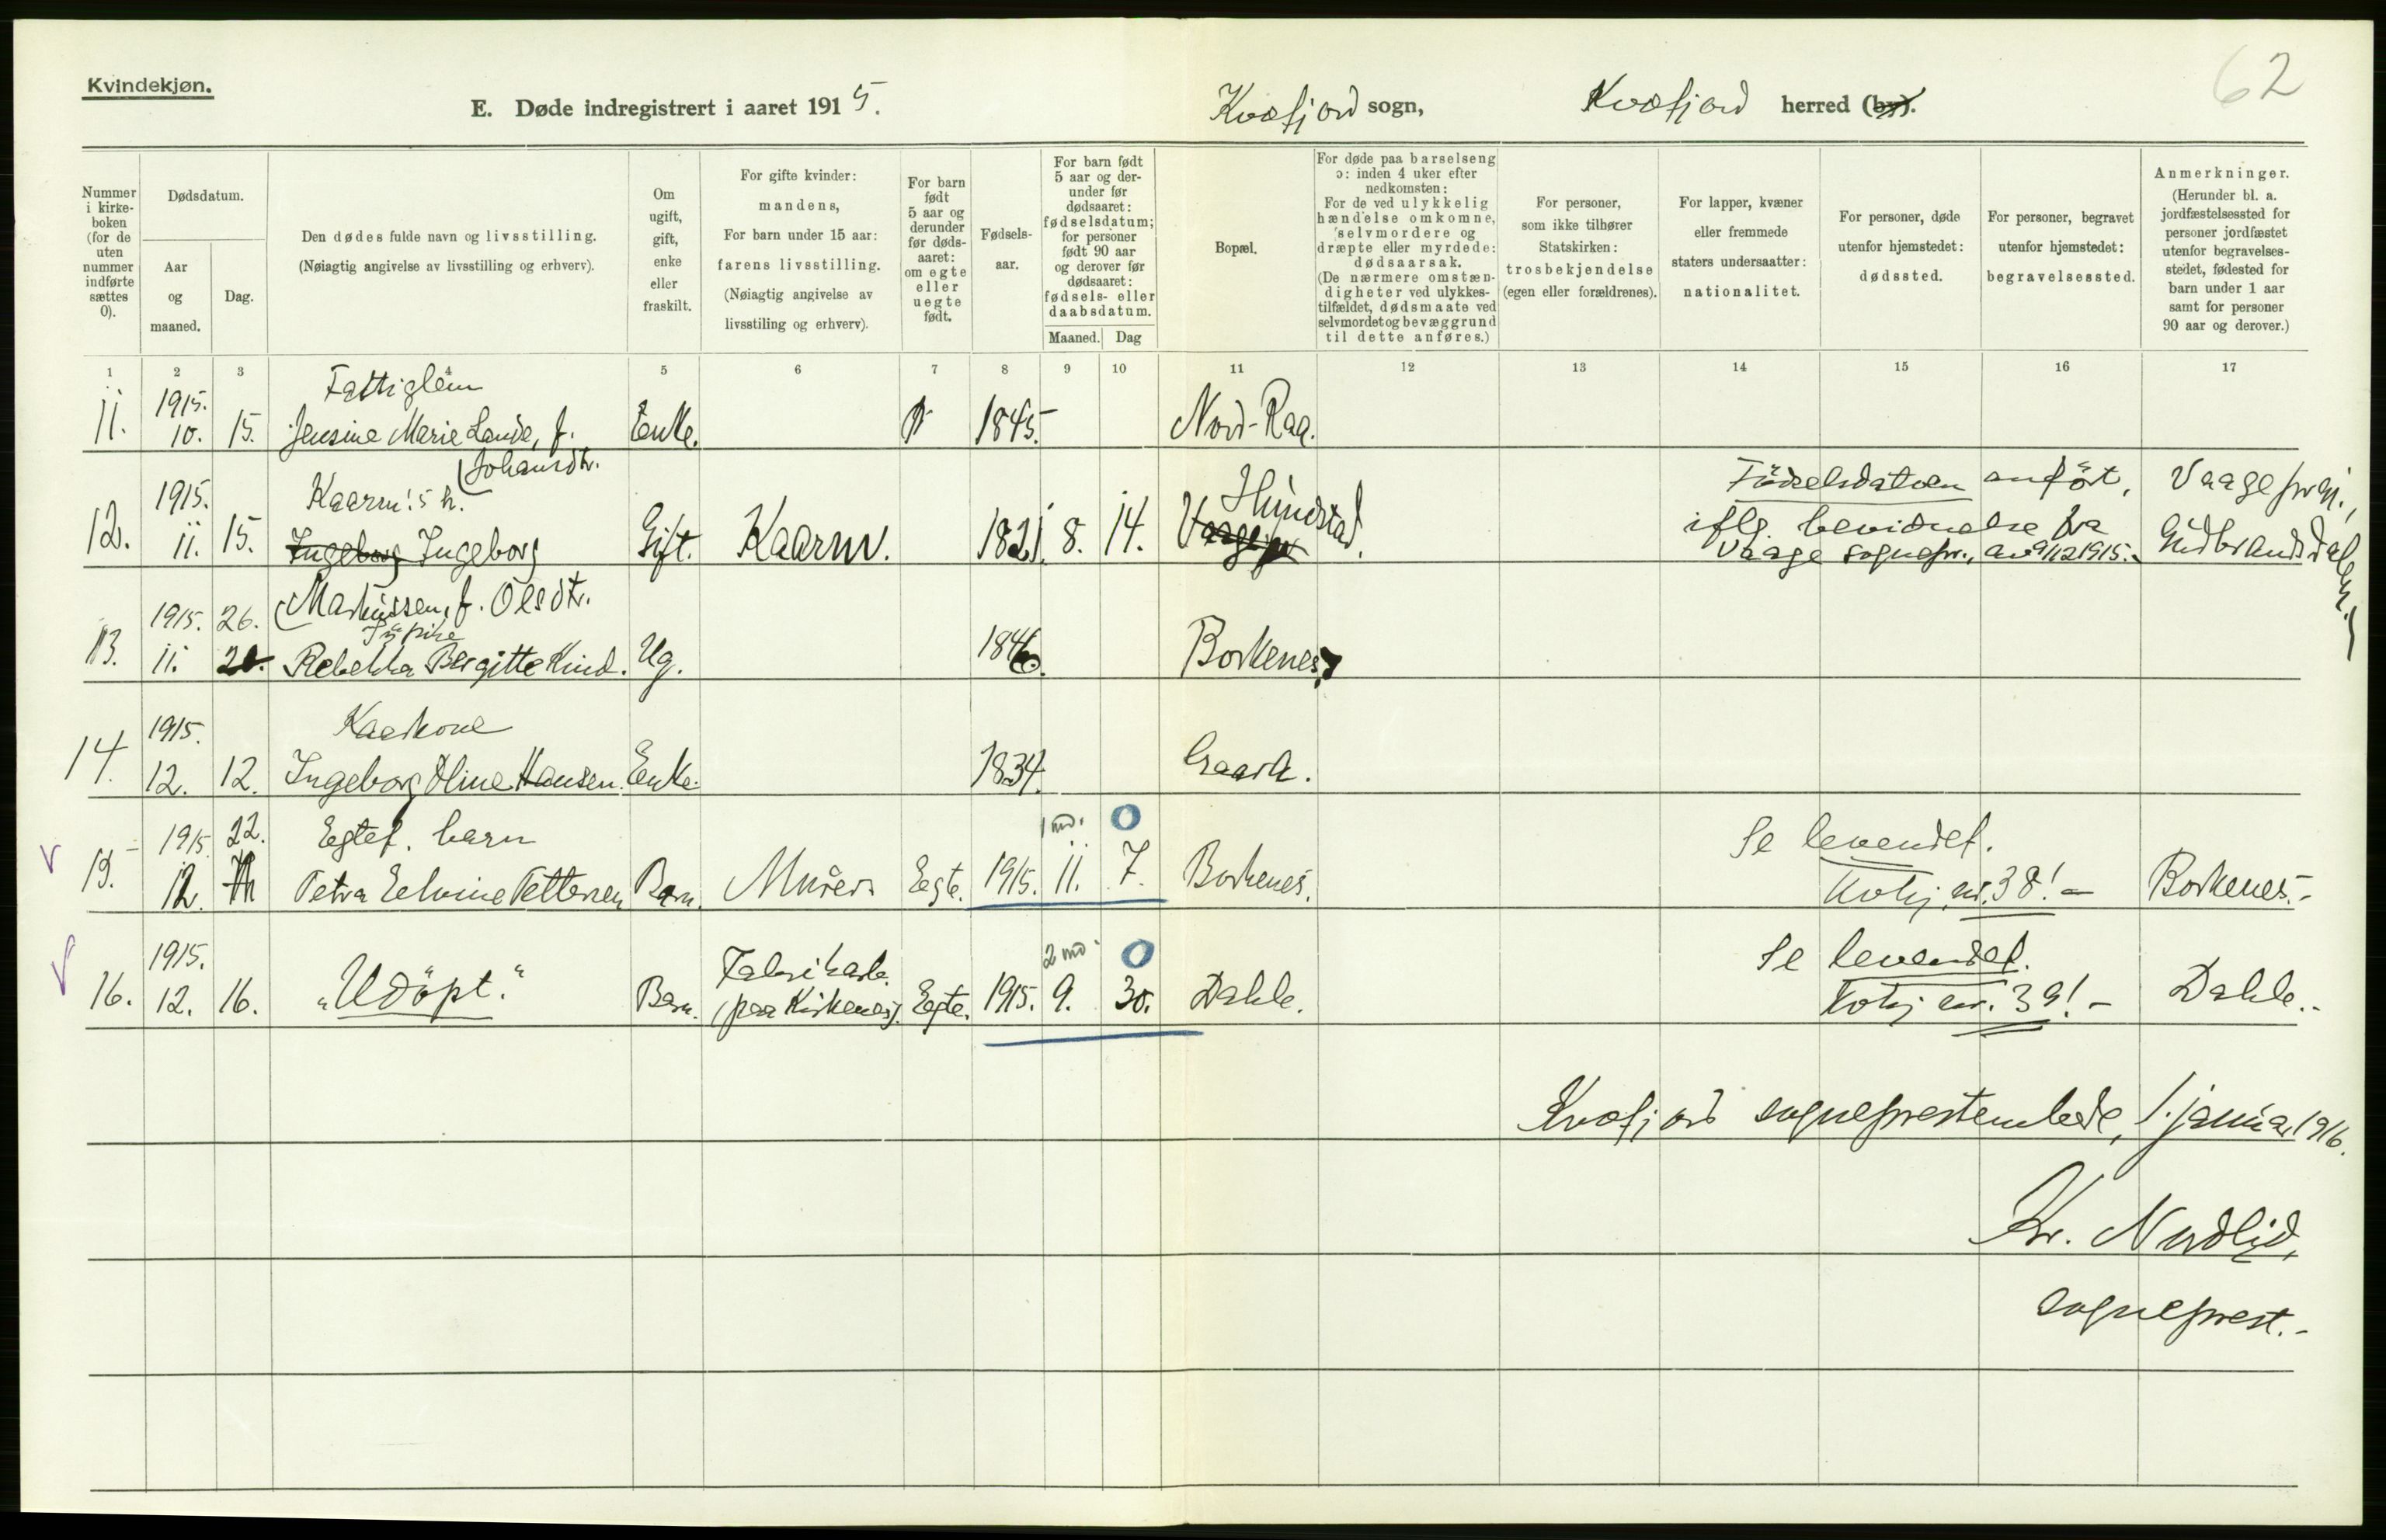 Kvindekjøn.
62
E. Døde indregistrert i aaret 1915.
Kvæfjord sogn,
Kvæfjord herred (by).
Nummer i kirke-boken (for de uten nummer indførte sættes 0).
Dødsdatum.
Aar og maaned.
Dag.
Den dødes fulde navn og livsstilling.
(Nøiagtig angivelse av livsstilling og erhverv).
Om ugift, gift, enke eller fraskilt.
For gifte kvinder: mandens,
For barn under 15 aar: farens livsstilling.
(Nøiagtig angivelse av livsstiling og erhverv).
For barn født 5 aar og derunder før døds-aaret: om egte eller uegte født.
Fødsels-aar.
For barn født 5 aar og der-under før dødsaaret: fødselsdatum; for personer født 90 aar og derover før dødsaaret: fødsels- eller daabsdatum.
Maaned.
Dag
Bopæl.
For døde paa barselseng ɔ: inden 4 uker efter nedkomsten: For de ved ulykkelig hændelse omkomne, selvmordere og dræpte eller myrdede: dødsaarsak.
(De nærmere omstæn-digheter ved ulykkes-tilfældet, dødsmaate ved selvmordet og bevæggrund til dette anføres.)
For personer, som ikke tilhører Statskirken: trosbekjendelse (egen eller forældrenes).
For lapper, kvæner eller fremmede staters undersaatter: nationalitet.
For personer, døde utenfor hjemstedet: dødssted.
For personer, begravet utenfor hjemstedet: begravelsessted.
Anmerkninger.
(Herunder bl. a. jordfæstelsessted for personer jordfæstet utenfor begravelses-stedet, fødested for barn under 1 aar samt for personer 90 aar og derover.)
1 2 3 4 5 6 7 8 9 10 11 12 13 14 15 16 17
Fattiglem
11. 1915. 10. 15. Jensine Marie Lande, f. Enke. 1845. Nord-Raa.
(Johansdtr.
Kaarm's h.
12. 1915. 11. 15. Ingeborg Ingeborg Gift. Kaarm. 1821. 8. 14. Vaage Hundstad.
Födselsdatoen anfört, iflg. bevidnelse fra Vaage sognepr., av 9/12 1915.
Vaage prgj., Gudbrandsdalen.
(Markussen, f. Olsdtr.
pike
13. 1915. 11. 26. Rebekka Bergitte Kind. Ug. 1846. Borkenes,
Kaarkone
14. 1915. 12. 12. Ingeborg Oline Hansen. Enke. 1834. Graark.
1 md. 0
Egtef. barn
15. 1915. 12. 22. Petra Elvine Pettersen Barn. Murer. Egte. 1915. 11. 7. Borkenes.
Se levendef. Kvkj. nr. 38! -
Borkenes.-
2 md. 0
16. 1915. 12. 16. „Udöpt." Barn. Fabrikarb. (paa Kirkenes). Egte. 1915. 9. 30. Dahle.
Se levendef. Kvkj nr. 39! -
Dahle.-
Kvæfjord sogneprestembede, 1. januar 1916.
Kr. Nordlid,
sogneprest.-